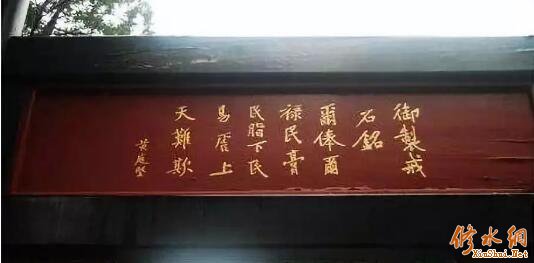 御製戒
石銘
爾俸爾
祿民膏
民脂下民
易虐上
天難欺
黃庭堅
修水網
XiuShui.Net